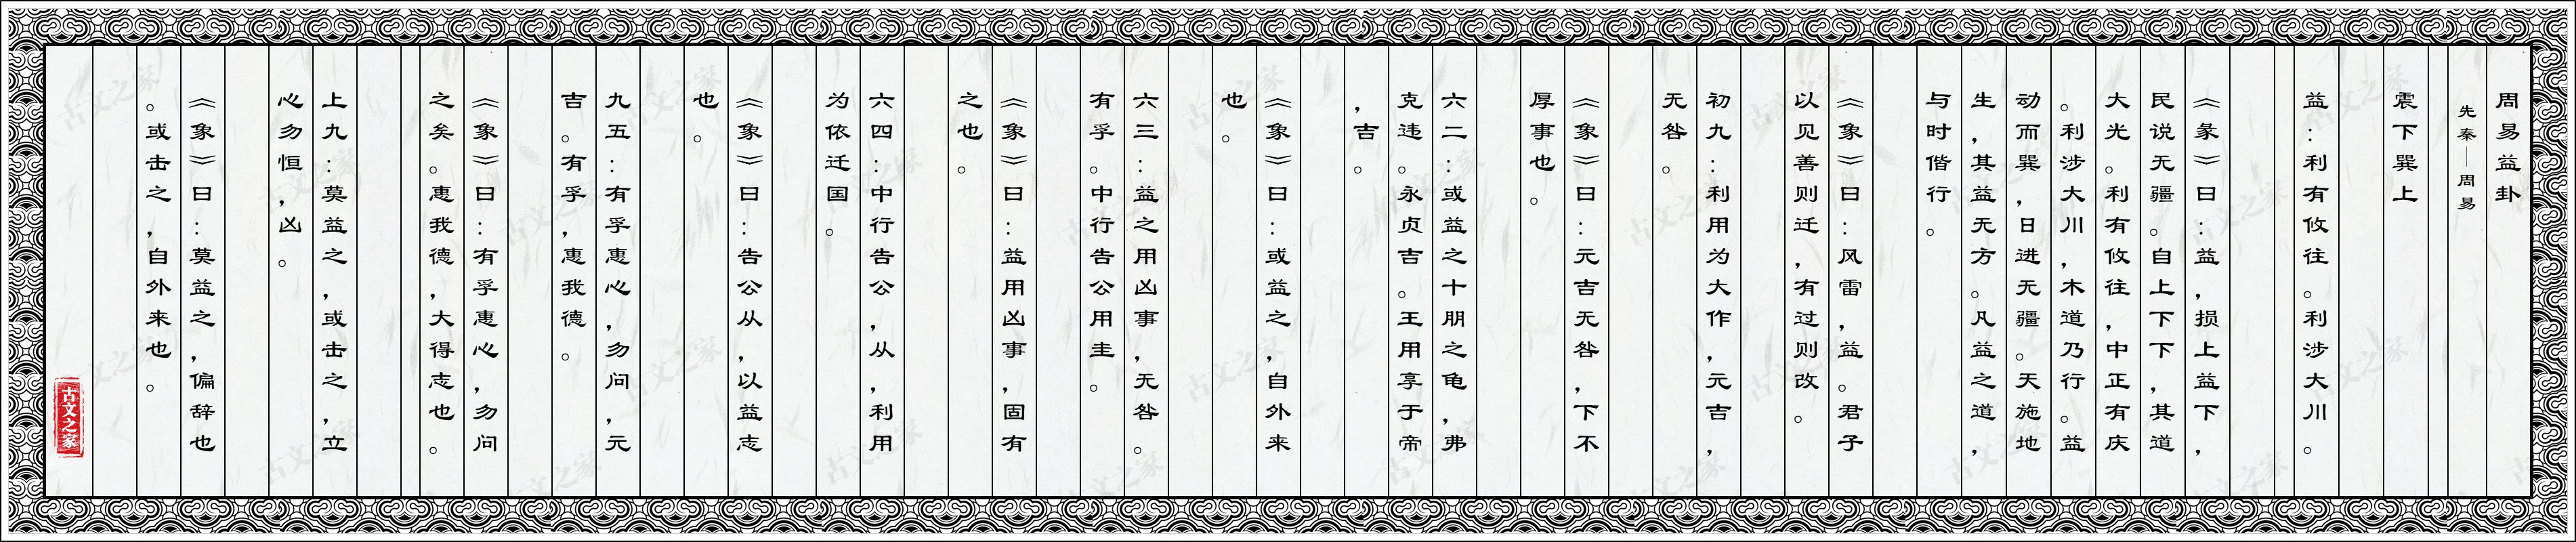 周易益卦
先秦—周易
震下巽上
益：利有攸往。利涉大川。
《彖》曰：益，损上益下，
民说无疆。自上下下，其道
大光。利有攸往，中正有庆
。利涉大川，木道乃行。益
动而巽，日进无疆。天施地
生，其益无方。凡益之道，
与时偕行。
《象》曰：风雷，益。君子
以见善则迁，有过则改。
初九：利用为大作，元吉，
无咎。
《象》曰：元吉无咎，下不
厚事也。
六二：或益之十朋之龟，弗
克违。永贞吉。王用享于帝
，吉。
《象》曰：或益之，自外来
也。
六三：益之用凶事，无咎。
有孚。中行告公用圭。
《象》曰：益用凶事，固有
之也。
六四：中行告公，从，利用
为依迁国。
《象》曰：告公从，以益志
也。
九五：有孚惠心，勿问，元
吉。有孚，惠我德。
《象》曰：有孚惠心，勿问
之矣。惠我德，大得志也。
上九：莫益之，或击之，立
心勿恒，凶。
《象》曰：莫益之，偏辞也
。或击之，自外来也。
古文之家